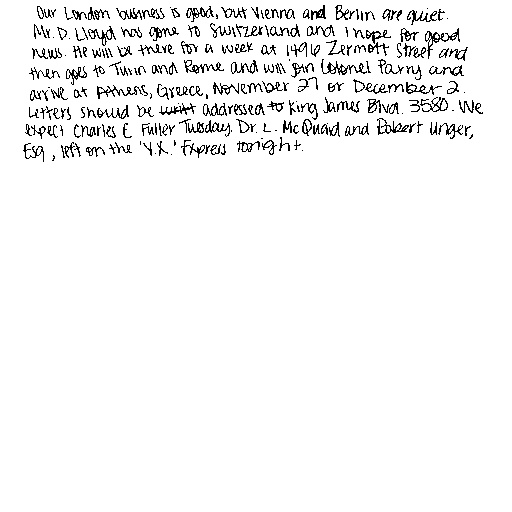 Our London business is good, but Vienna and Berlin are quiet.
Mr. D. Lloyd has gone to Switzerland and I hope for good
news. He will be there for a week at 1496 Zermott Street and
then goes to Turin and Rome and will join Colonel Parry and
arrive at Athens, Greece, November 27 or December 2.
Letters should be addressed to King James Blvd. 3580. We
expect Charles E. Fuller Tuesday. Dr. L. McQuaid and Robert Unger,
Esq., left on the 'Y.X.' Express tonight.